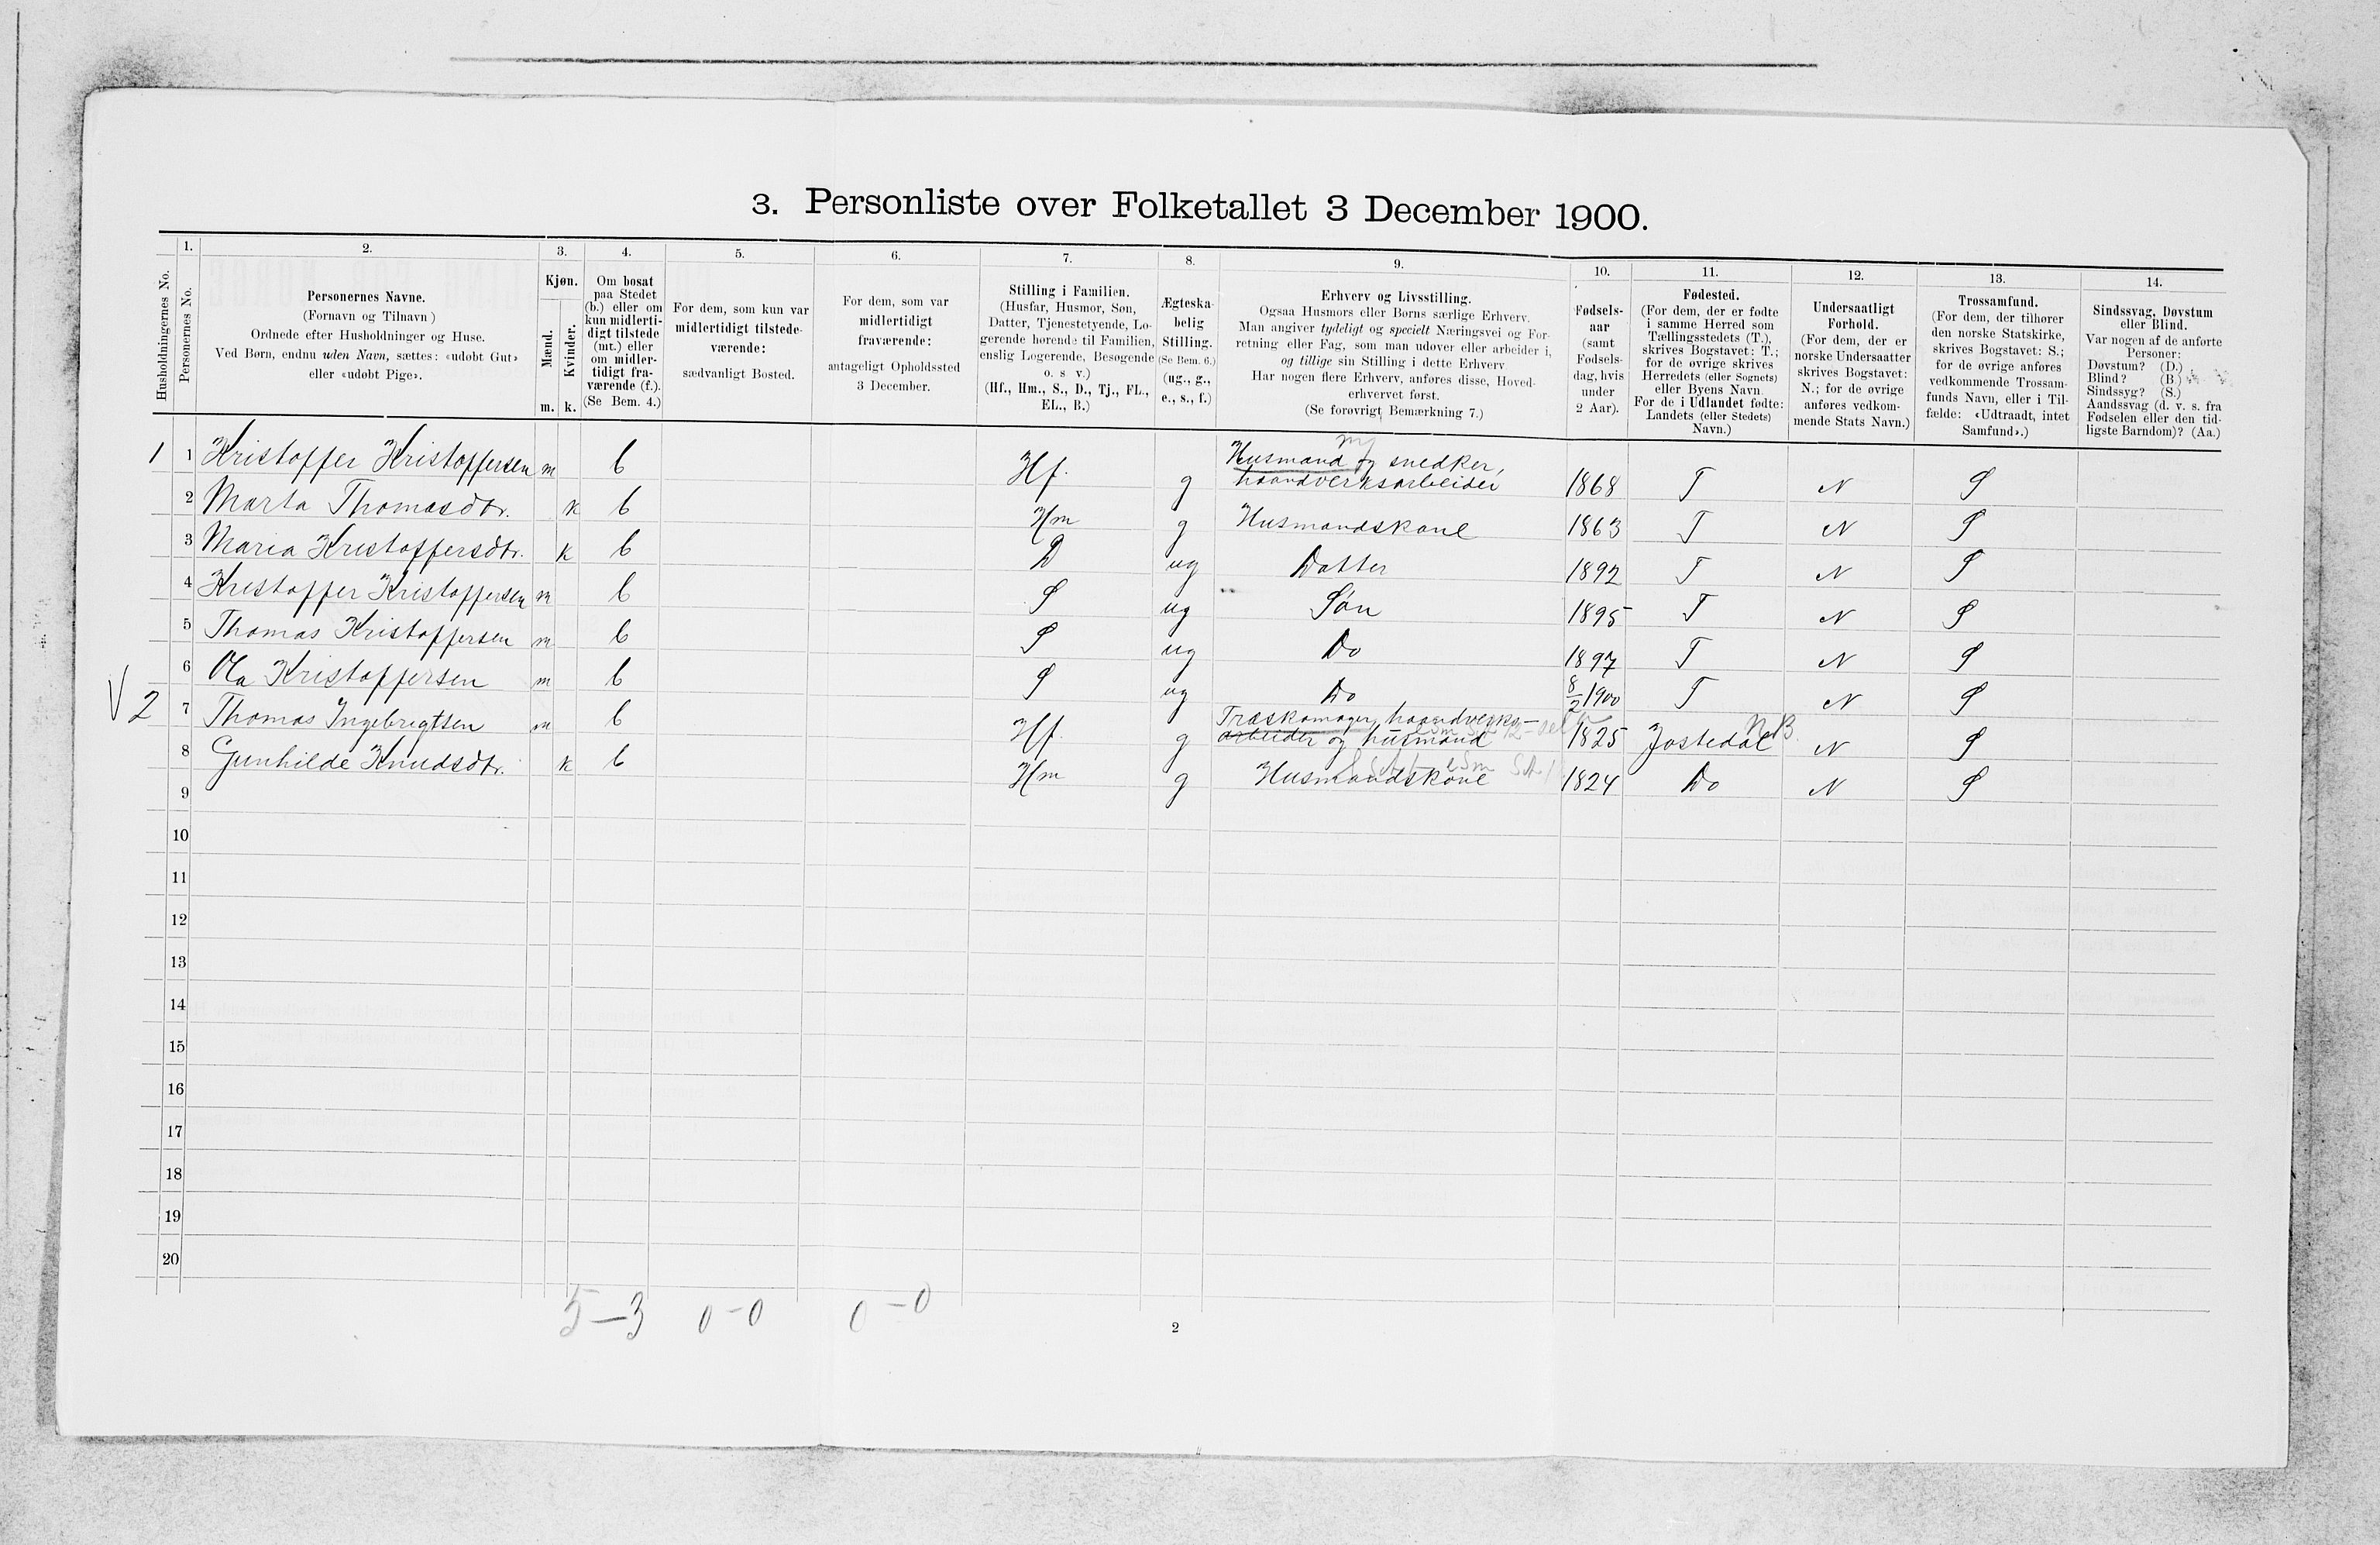 3. Personliste over Folketallet 3 December 1900.
1. 2. 3. 4. 5. 6. 7. 8. 9. 10. 11. 12. 13. 14.
Husholdningernes No.
Personernes No.
Personernes Navne.
(Fornavn og Tilnavn)
Ordnede efter Husholdninger og Huse.
Ved Børn, endnu uden Navn, sættes: «udøbt Gut»
eller «udøbt Pige».
Kjøn.
Mænd.
Kvinder.
m. k.
Om bosat
paa Stedet
(b.) eller om
kun midlerti-
digt tilstede
(mt.) eller
om midler-
tidigt fra-
værende (f.).
(Se Bem. 4.)
For dem, som kun var
midlertidigt tilstede-
værende:
sædvanligt Bosted.
For dem, som var
midlertidigt
fraværende:
antageligt Opholdssted
3 December.
Stilling i Familien.
(Husfar, Husmor, Søn,
Datter, Tjenestetyende, Lo-
gerende hørende til Familien,
enslig Logerende, Besøgende
o. s. v.)
(Hf., Hm., S., D., Tj., FL.,
EL., B.)
Ægteska-
belig
Stilling.
(Se Bem. 6.)
(ug., g.,
e., s., f.)
Erhverv og Livsstilling.
Ogsaa Husmors eller Børns særlige Erhverv.
Man angiver tydeligt og specielt Næringsvei og For-
retning eller Fag, som man udøver eller arbeider i,
og tillige sin Stilling i dette Erhverv
Har nogen flere Erhverv, anføres disse, Hoved-
erhvervet først.
(Se forøvrigt Bemærkning 7.)
Fødsels-
aar
(samt
Fødsels-
dag, hvis
under
2 Aar).
Fødested.
(For dem, der er fødte
i samme Herred som
Tællingsstedets (T.),
skrives Bogstavet: T.;
for de øvrige skrives
Herredets (eller Sognets)
eller Byens Navn.
For de i Udlandet fødte:
Landets (eller Stedets)
Navn.)
Undersaatligt
Forhold.
(For dem, der er
norske Undersaatter
skrives Bogstavet:
N.; for de øvrige
anføres vedkom-
mende Stats Navn.)
Trossamfund.
(For dem, der tilhører
den norske Statskirke,
skrives Bogstavet: S.;
for de øvrige anføres
vedkommende Trossam-
funds Navn, eller i Til-
fælde: «Udtraadt, intet
Samfund».)
Sindssvag, Døvstum
eller Blind.
Var nogen af de anførte
Personer:
Døvstum? (D.)
Blind? (B.)
Sindssyg? (S.)
Aandssvag (d. v. s. fra
Fødselen eller den tid-
ligste Barndom)? (Aa.)
1 1 Kristoffer Kristoffersen m b Hf. g Husmand og snedker, haandverksarbeider 1868 T N S
2 Marta Thomasdtr. k b Hm g Husmandskone 1863 T N S
3 Maria Kristoffersdtr. k b D ug Datter 1892 T N S
4 Kristoffer Kristoffersen m b S ug Søn 1895 T N S
5 Thomas Kristoffersen m b S ug Do 1897 T N S
6 Ola Kristoffersen m b S ug Do 8/2 1900 T N S
V 2 7 Thomas Ingebrigtsen m b Hf. g Træskomager, haandverks- arbeider og husmand 1825 Jostedal N.B. N S
8 Gunhilde Knudsdtr. k b Hm g Husmandskone 1824 Do N S
9
10
11
12
13
14
15
16
17
18
19
20
5-3 0-0 0-0
2